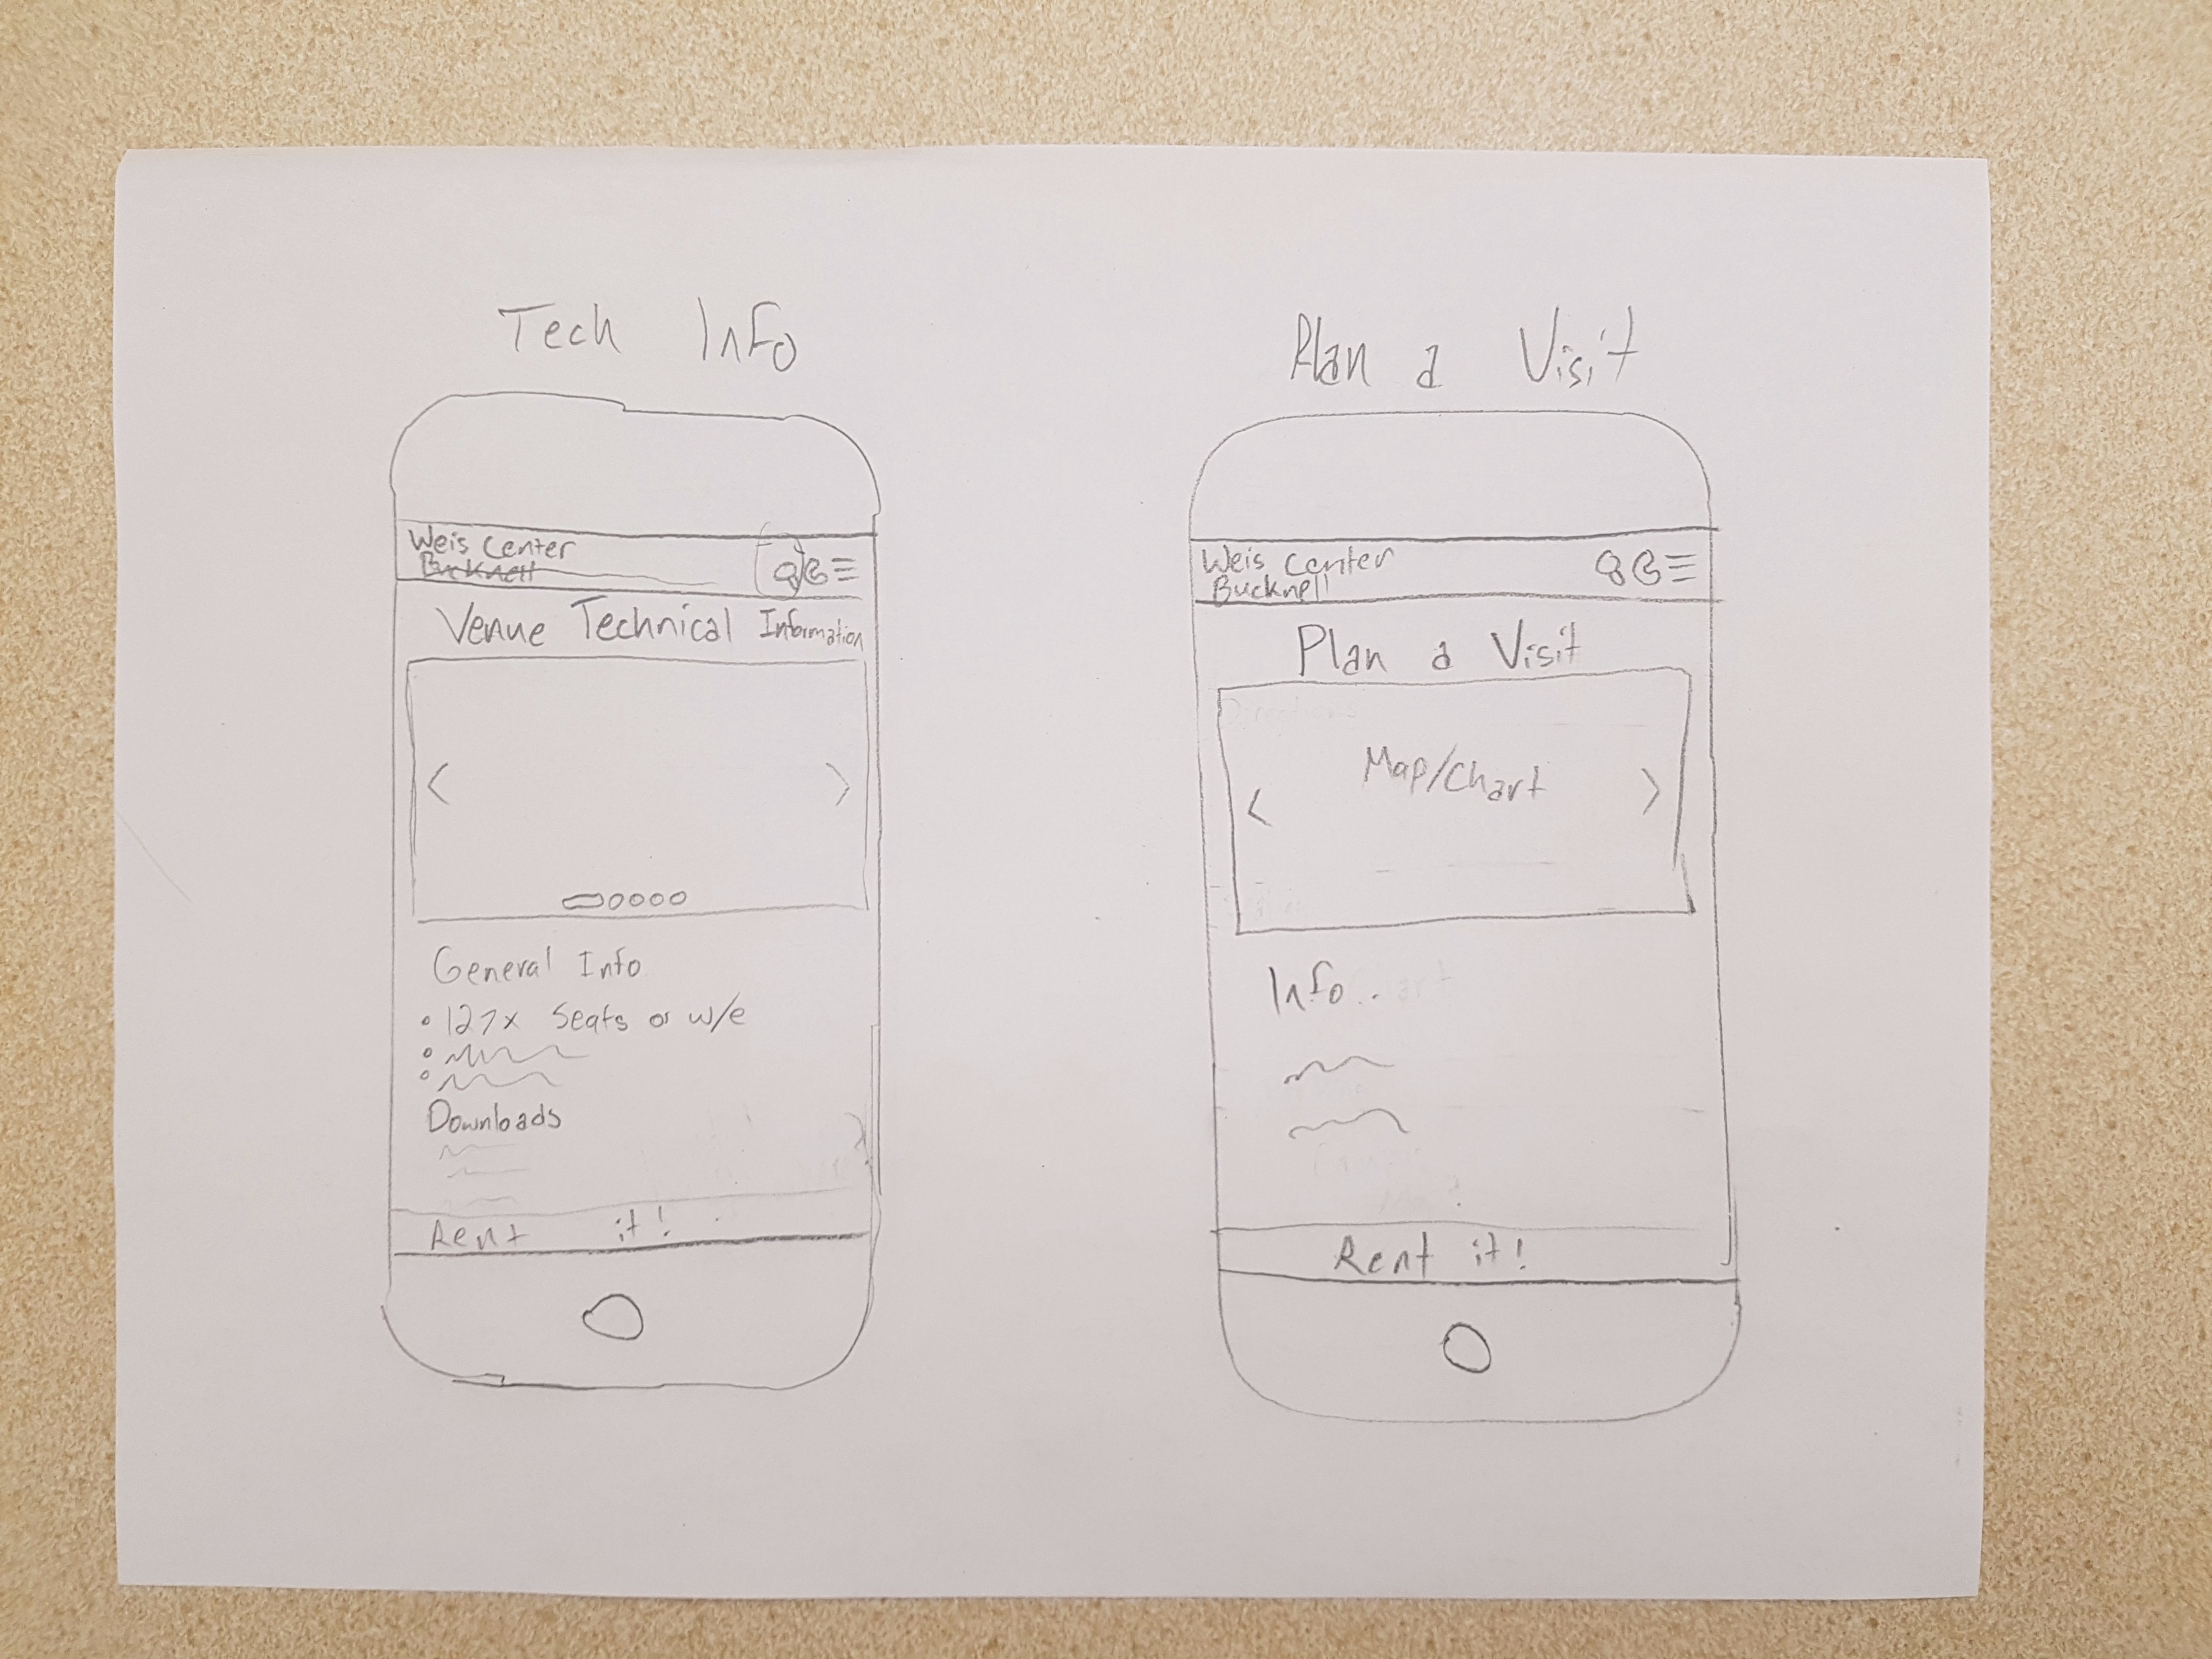 Tech Info
Weis Center
Bucknell
Venue Technical Information
General Info
• 127x Seats or w/e
Downloads
Rent it!
Plan a Visit
Weis Center
Bucknell
Plan a Visit
Map/Chart
Info
Rent it!